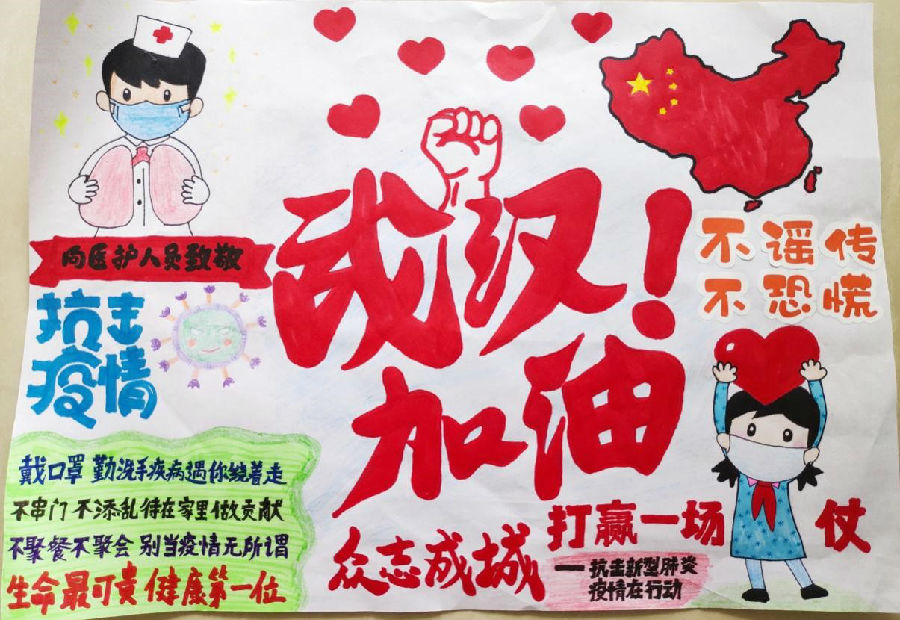 向医护人员致敬
武汉！
加油
不谣传
不恐慌
抗击
疫情
戴口罩 勤洗手疾病遇你绕着走
不串门 不添乱待在家里做贡献
不聚餐不聚会 别当疫情无所谓
生命最可贵 健康第一位
众志成城
打赢一场 仗
—抗击新型肺炎
疫情在行动